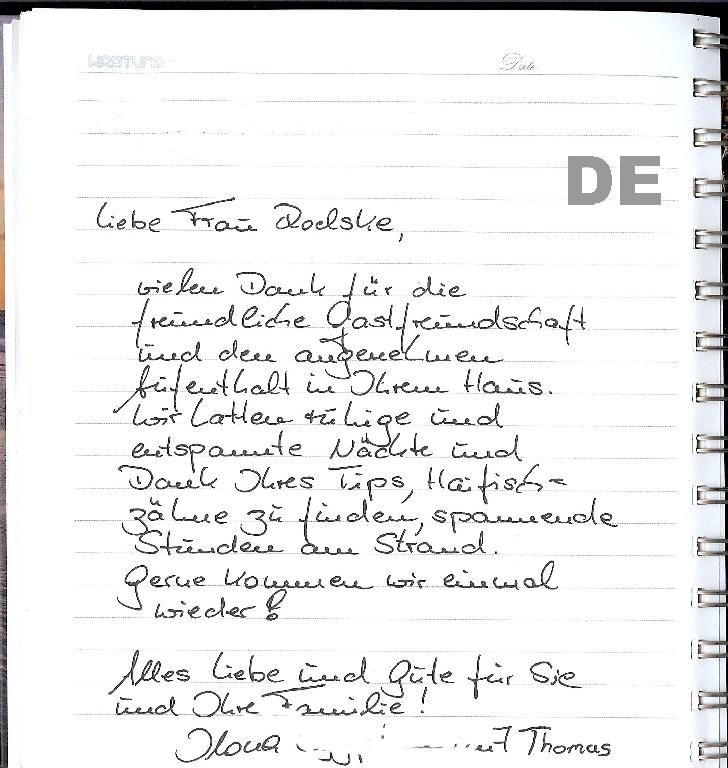 Date
DE
Liebe Frau Roelske,
vielen Dank für die
freundliche Gastfreundschaft
und den angenehmen
Aufenthalt in Ihrem Haus.
Wir hatten ruhige und
entspannte Nächte und
Dank Ihres Tips, Haifisch=
zähne zu finden, spannende
Stunden am Strand.
Gerne kommen wir einmal
wieder!
Alles Liebe und Gute für Sie
und Ihre Familie!
Ilona Thomas